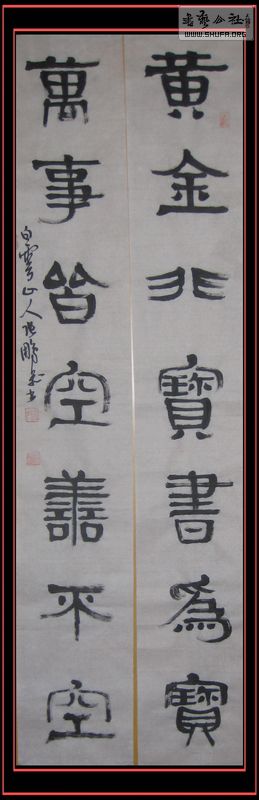 書藝公社
WWW.SHUFA.ORG
黄金非寶書為寶
萬事皆空善不空
白雲山人張鵬書